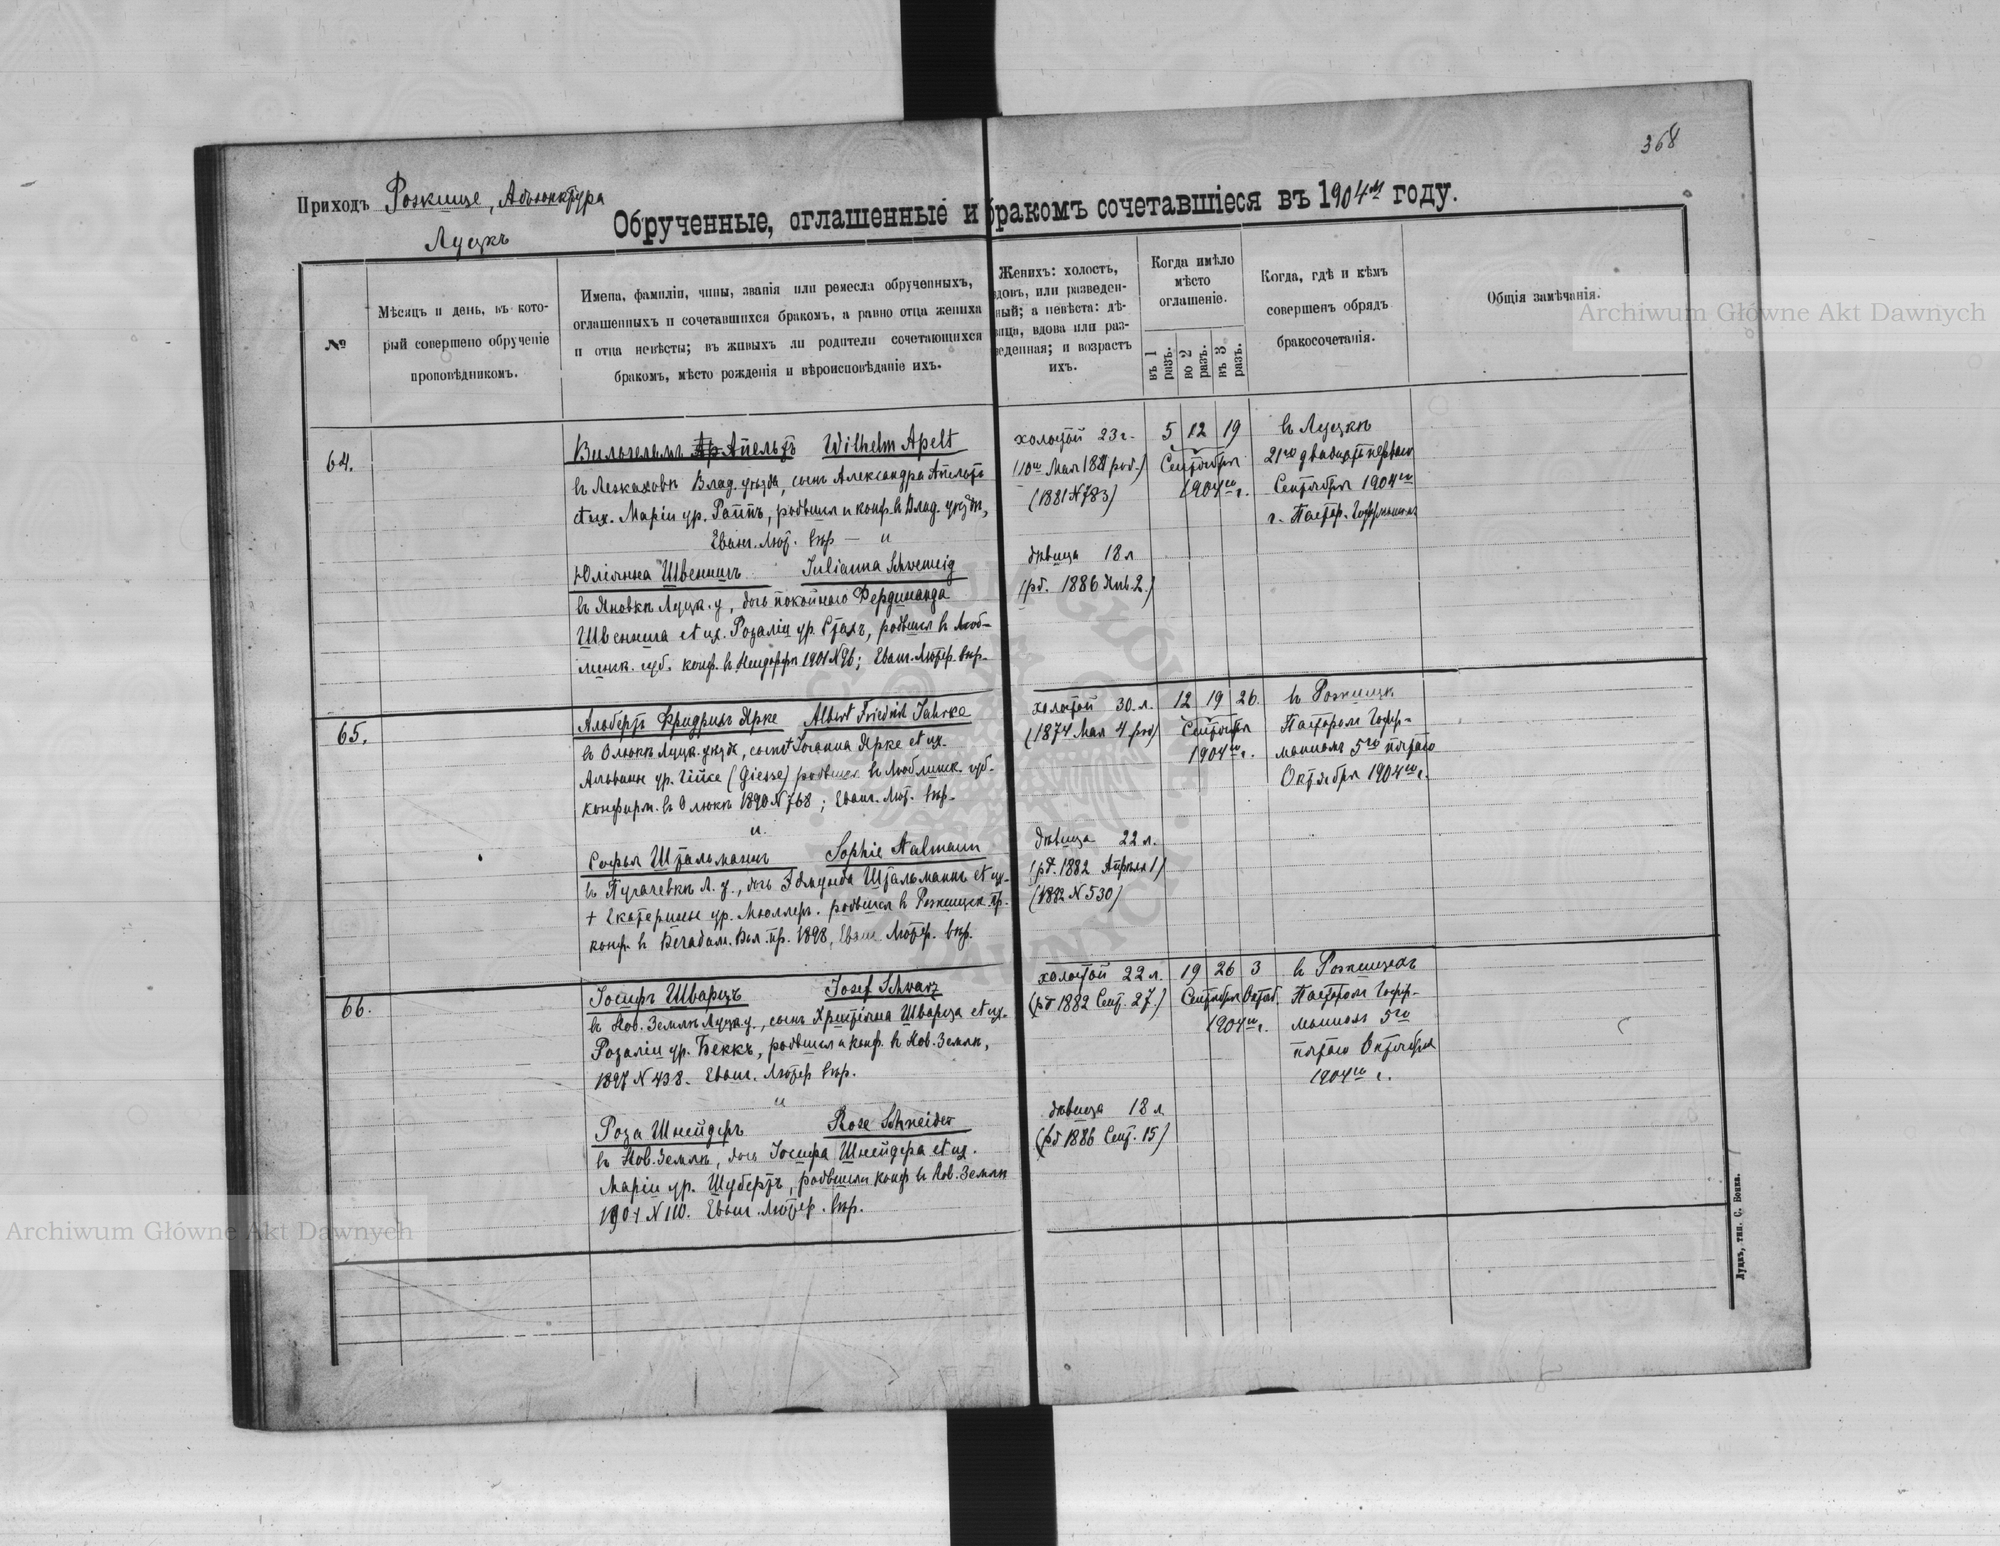 368
Приходъ Рожище, Адъюнктура
Луцкъ
Обрученные, оглашенные и бракомъ сочетавшіеся въ 1904м году.
№
Мѣсяцъ и день, въ кото-
рый совершено обрученіе
проповѣдникомъ.
Имена, фамиліи, чины, званія или ремесла обрученныхъ,
оглашенныхъ и сочетавшихся бракомъ, а равно отца жениха
и отца невѣсты; въ живыхъ ли родители сочетающихся
бракомъ, мѣсто рожденія и вѣроисповѣданіе ихъ.
Женихъ: холостъ,
вдовъ, или разведен-
ный; а невѣста: дѣ-
вица, вдова или раз-
веденная; и возрастъ
ихъ.
Когда имѣло
мѣсто
оглашеніе.
въ 1 разъ.
во 2 разъ.
въ 3 разъ.
Когда, гдѣ и кѣмъ
совершенъ обрядъ
бракосочетанія.
Общія замѣчанія.
64.
Вильгельмъ Апельтъ Wilhelm Apelt
въ Лежаховкѣ Влад. уѣзда, сынъ Александра Апельта
et ux. Маріи ур. Раппъ, родвшися и конф. въ Влад. уѣздѣ,
Еванг. Лют. вѣр — и
Юліянна Швенигъ Julianna Schwenig
въ Яновкѣ Луцк. у, дочь покойнаго Фердинанда
Швенига et ux. Розаліи ур. Сталъ, родвшися въ Люб-
линск. губ. конф. въ Нейдорфѣ 1901 N 96; Еванг. Лютер. вѣр.
холостой 23 г.
(10го Мая 1881 род.)
(1881 N 783)
дѣвица 18 л
(рд. 1886 Янв. 2.)
5 12 19
Сентября
1904го г.
въ Луцкѣ
21го двадцать перваго
Сентября 1904го
г. Пастор. Гоффманомъ
65.
Альбертъ Фридрихъ Ярке Albert Friedrich Jahrke
въ Олыкѣ Луцк. уѣзда, сынъ † Іоганна Ярке et ux.
Альвины ур. Гийсе (Giesse) родвшися въ Люблинск. губ.
конфирм. въ Олыкѣ 1890 N 768; Еванг. Лют. вѣр.
и
Софья Штальманнъ Sophie Stalmann
въ Пугачевкѣ Л. у., дочь Готлиба Штальманнъ et ux.
† Екатерины ур. Мюллеръ. родвшися въ Рожищск. пр.
конф. въ Вол. пр. 1898, Еванг. Лютер. вѣр.
холостой 30. л.
(1874 Мая 4 род)
дѣвица 22 л.
(рд. 1882 Апрѣля 1)
(1882 N 530)
12 19 26
Сентября
1904го г.
въ Рожищѣ
Пасторомъ Гофф-
манномъ 5го пятаго
Октября 1904го г.
66.
Іосифъ Шварцъ Josef Schwarz
въ Нов. Землѣ Луцк. у., сынъ Христіана Шварца et ux.
Розаліи ур. Беккъ, родвшися и конф. въ Нов. Землѣ,
1897 N 438. Еванг. Лютер вѣр.
и
Роза Шнейдеръ Rose Schneider
въ Нов. Землѣ, дочь Іосифа Шнейдера et ux.
Маріи ур. Шубертъ, родвшися конф въ Нов. Землѣ
1901 N 110. Еванг. Лютер. вѣр.
холостой 22 л.
(рд 1882 Сент. 27.)
дѣвица 18 л
(рд 1886 Сент. 15)
19 26 3
Сентября Октяб.
1904го г.
въ Рожищахъ
Пасторомъ Гофф-
манномъ 5го
пятаго Октября
1904го г.
Луцкъ, тип. С. Бокка.
Archiwum Główne Akt Dawnych
Archiwum Główne Akt Dawnych